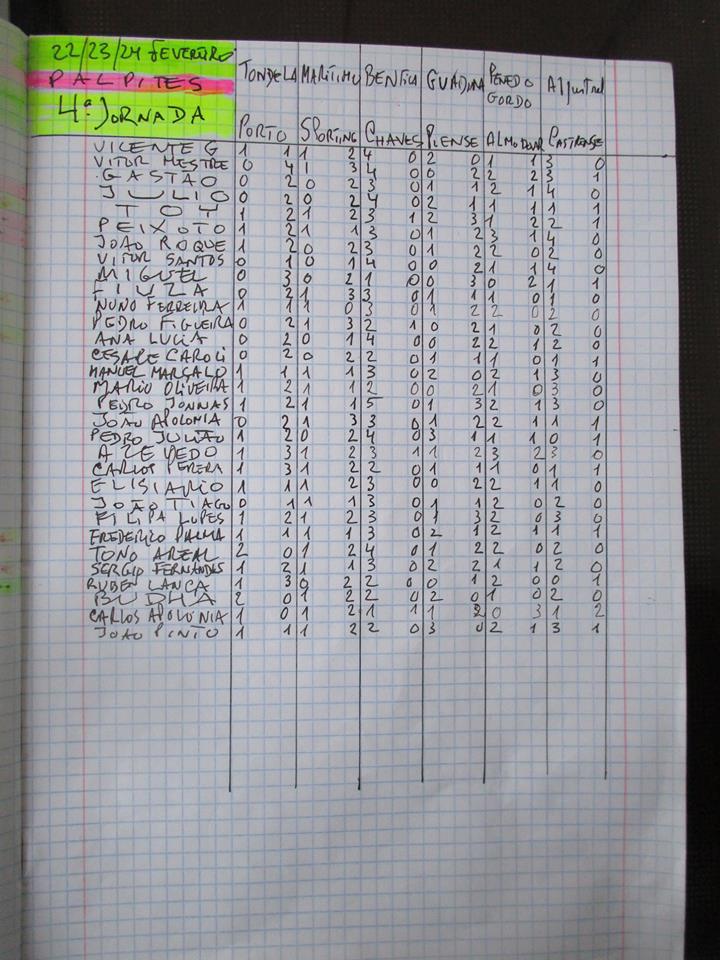 22/23/24 FEVEREIRO
PALPITES
4ª JORNADA
TONDELA MARÍTIMO BENFICA GUADIANA PENEDO GORDO Aljustrel
PORTO SPORTING CHAVES PIENSE ALMODOVAR CASTRENSE
VICENTE G 1 1 1 2 4 0 2 0 1 1 3 0
VITOR MESTRE 0 4 1 3 4 0 0 2 2 2 3 1
GASTÃO 0 2 0 2 3 0 1 1 2 1 4 0
JULIO 0 2 0 2 4 0 2 1 1 1 1 1
TOY 1 2 1 2 3 1 2 3 1 2 2 1
PEIXOTO 1 2 1 1 3 0 1 2 3 1 4 0
JOAO ROQUE 1 2 0 2 3 0 1 2 2 0 2 0
VITOR SANTOS 0 1 0 1 4 0 0 2 1 1 4 0
MIGUEL 0 3 0 2 1 0 0 3 0 2 1 1
FIUZA 0 2 1 3 3 0 1 1 1 0 1 0
NUNO FERREIRA 1 1 1 0 3 0 1 2 2 0 2 0
PEDRO FIGUEIRA 0 2 1 3 2 1 0 2 1 0 2 0
ANA LUCIA 0 2 0 1 4 0 0 2 2 1 2 0
CESARE CAROLI 0 2 0 2 2 0 1 1 1 0 1 1
MANUEL MARÇALO 1 1 1 1 3 0 2 0 2 1 3 0
MARIO OLIVEIRA 1 2 1 1 2 0 0 2 1 0 3 0
PEDRO JONNAS 1 2 1 1 5 0 1 3 2 1 3 0
JOÃO APOLONIA 0 2 1 3 3 0 1 2 2 1 1 1
PEDRO JULIÃO 1 2 0 2 4 0 3 1 1 1 0 1
AZEVEDO 1 3 1 2 3 1 1 2 3 2 3 0
CARLOS PEREIRA 1 3 1 2 2 0 1 1 1 0 1 1
ELISIARIO 1 1 1 2 3 0 0 2 2 1 1 0
JOÃO TIAGO 0 1 1 1 3 0 1 1 2 0 2 0
FILIPA LOPES 1 2 1 2 3 0 1 3 2 0 3 0
FREDERICO PALMA 1 1 1 1 3 0 2 1 2 1 1 1
TONO AREAL 2 0 1 2 4 0 1 2 2 0 2 0
SERGIO FERNANDES 1 2 1 1 3 0 2 2 1 1 2 0
RUBEN LANÇA 1 3 0 2 2 0 0 1 2 0 0 1
BUDHA 2 0 1 2 2 0 2 0 1 0 2 0
CARLOS APOLONIA 1 0 1 2 1 1 1 2 0 3 1 2
JOAO PINTO 1 1 1 2 2 0 3 0 2 1 3 1